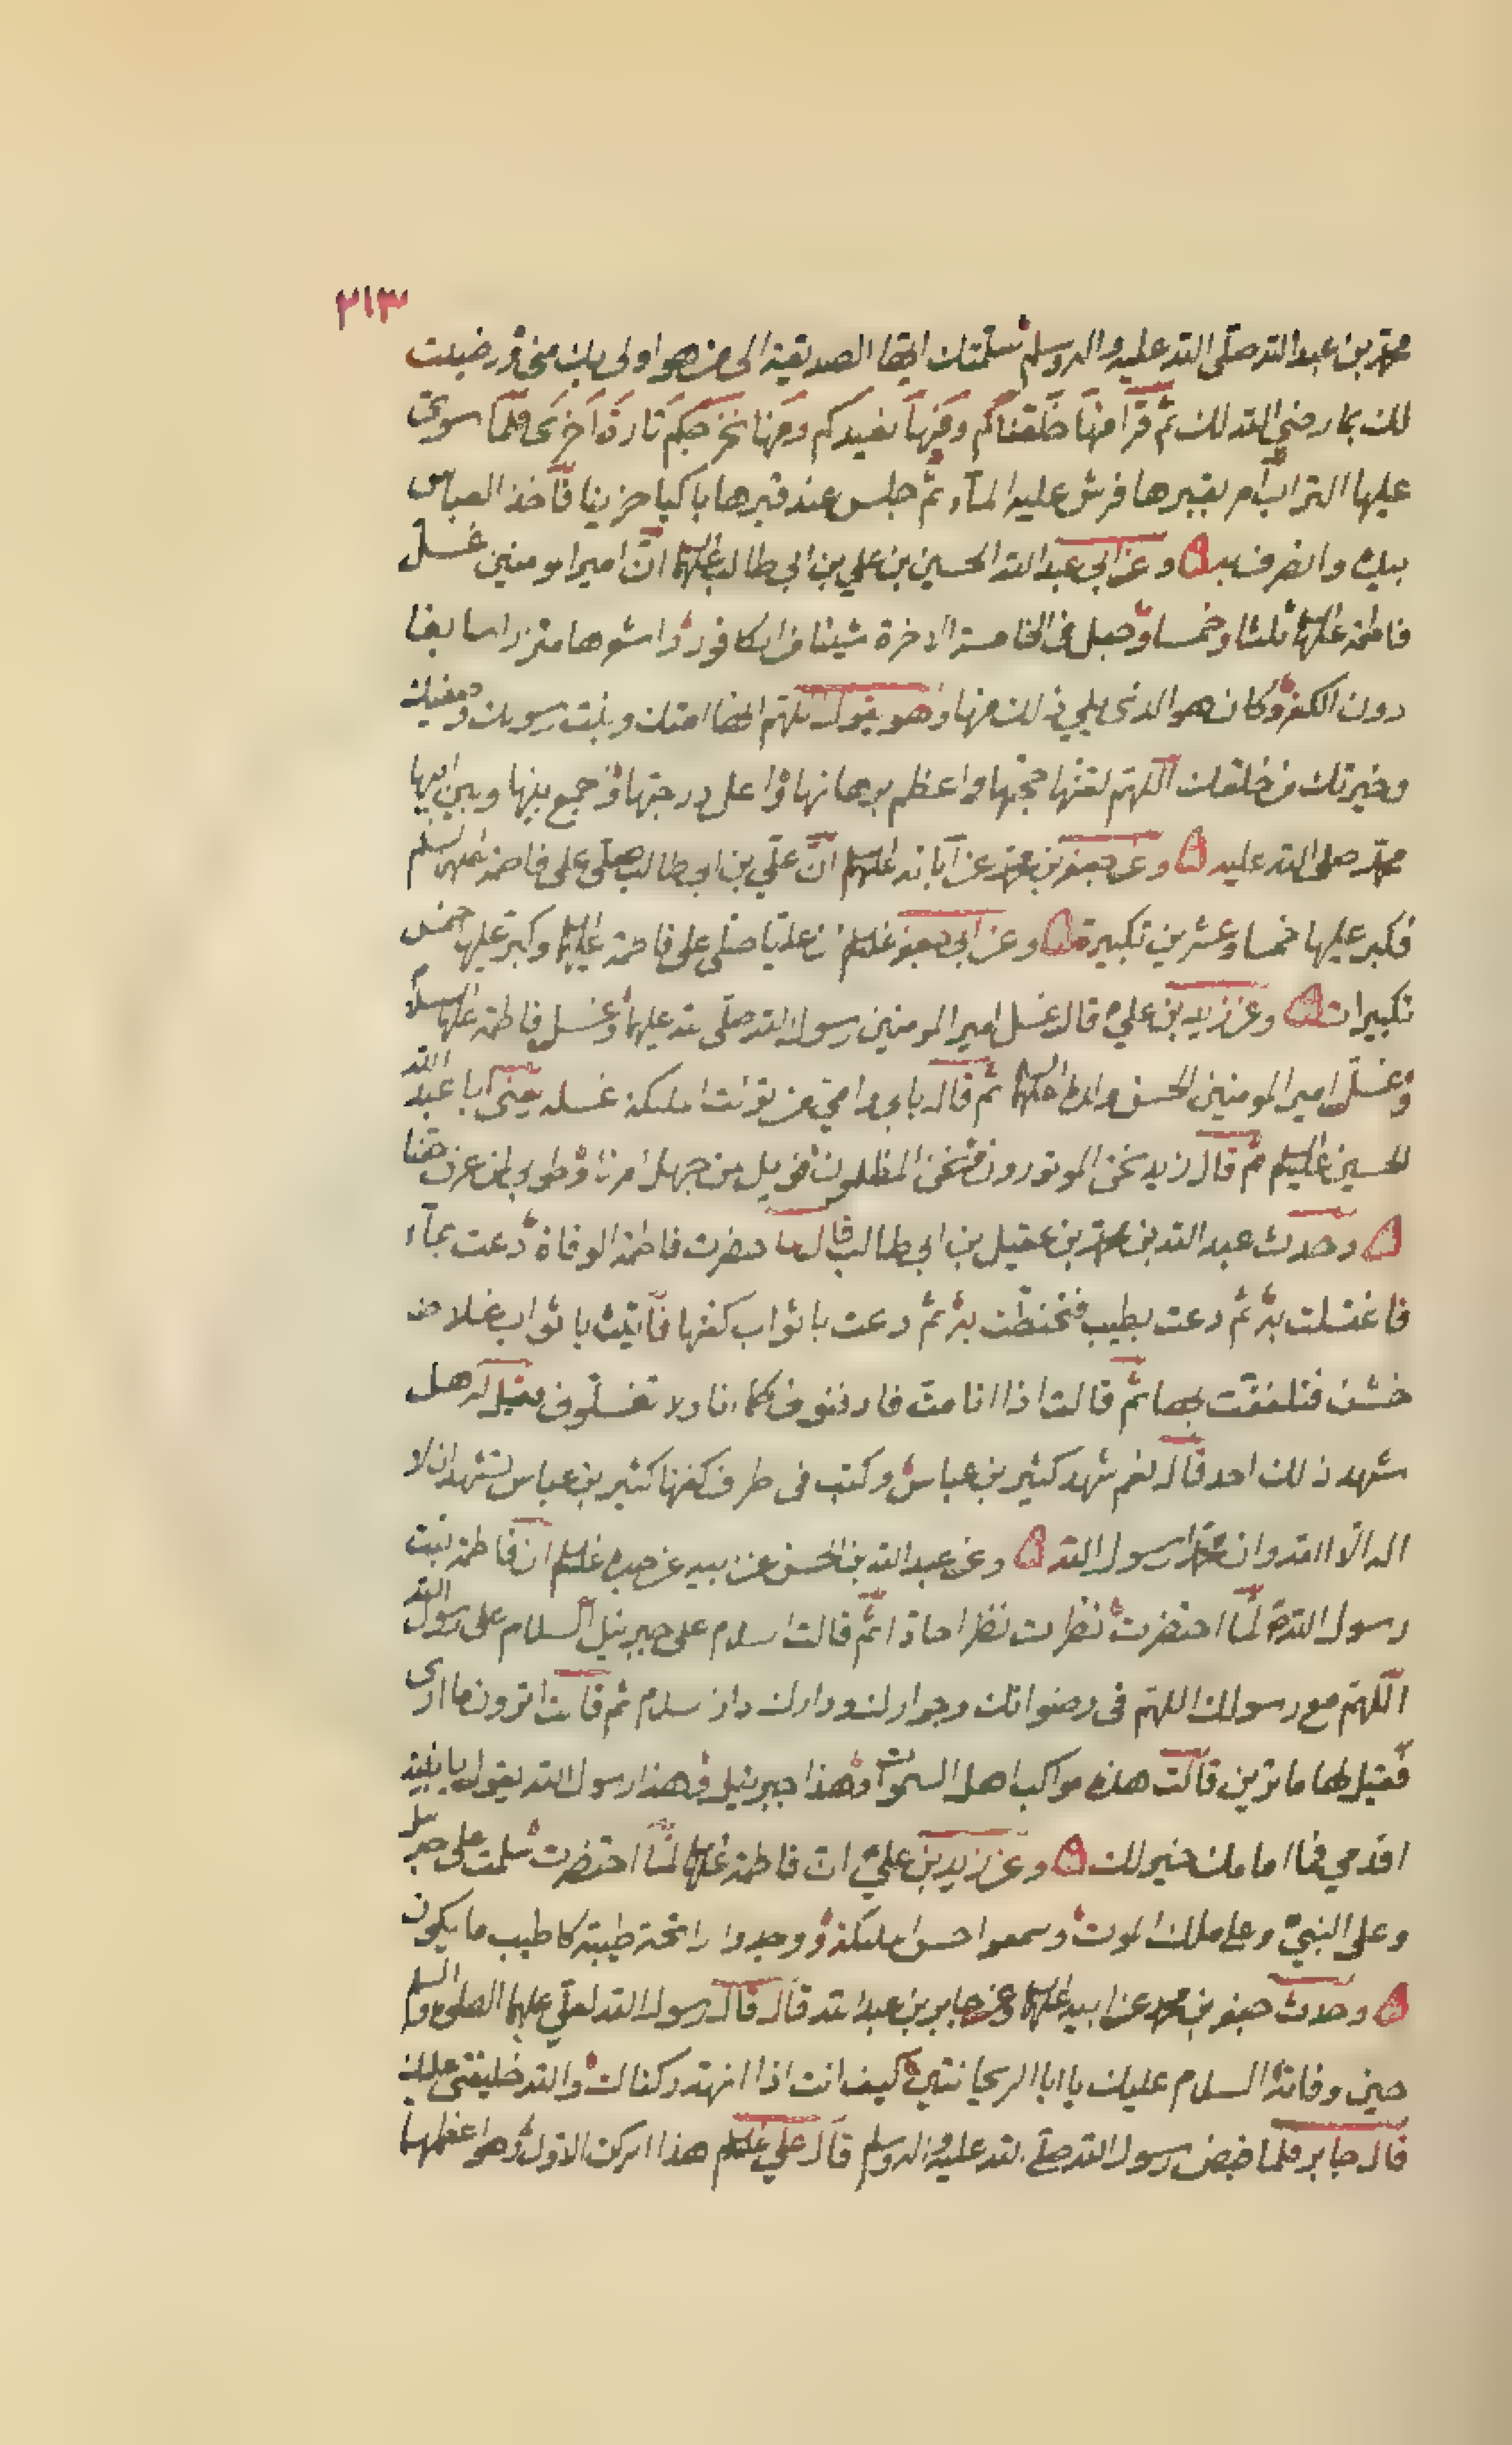 ٣١٣
محمد بن عبد الله صلى الله عليه واله وسلم سلمتك ايتها الصديقة الى من هو اولى بك مني ورضيت
لك بما رضي الله لك ثم قرأ منها خلقناكم وفيها نعيدكم ومنها نخرجكم تارة اخرى فلما سوى
عليها التراب امر بقبرها فرش عليه الماء ثم جلس عند قبرها باكيا حزينا فأخذ العباس
بيده وانصرف به وعن ابي عبد الله الحسين بن علي بن ابي طالب عليهما ان امير المومنين غسل
فاطمة عليها ثلثا وخمسا وجعل في الخامسة الاخرة شيئا من الكافور واشعرها مئزرا سابغا
دون الكفن وكان هو الذي يلي ذلك منها وهو يقول اللهم انها امتك وبنت رسولك وصفيك
وخيرتك من خلقك اللهم لقنها حجتها واعظم برهانها واعل درجتها واجمع بينها وبين ابيها
محمد صلى الله عليه وعن جعفر بن محمد عن آبائه عليهم السلم ان علي بن ابي طالب صلى على فاطمة عليها السلم
فكبر عليها خمسا وعشرين تكبيرة وعن ابي جعفر عليه السلم ان عليا صلى على فاطمة عليها السلم وكبر عليها خمس
تكبيرات وعن زيد بن علي قال غسل امير المومنين رسول الله صلى الله عليهما وغسل فاطمة عليها السلام
وغسل امير المومنين الحسن والحسين عليهما السلم ثم قال بابي وامي من تولت الملئكة غسله يعني ابا عبد الله
الحسين عليه السلم ثم قال زيد نحن الموتورون ونحن المظلومون فويل من جهل امرنا وطوبى لمن عرف حقنا
وحدث عبد الله بن محمد بن عقيل بن ابي طالب قال لما حضرت فاطمة الوفاة دعت بماء
فاغتسلت به ثم دعت بطيب فتحنطت به ثم دعت باثواب كفنها فأتيت باثواب غلاظ
خشن فتلففت بها ثم قالت اذا انا مت فادفنوني كما انا ولا تغسلوني فقيل له هل
شهد ذلك احد قال نعم شهد كثير بن عباس وكتب في طرف كفنها كثير بن عباس تشهد ان لا
اله الا الله وان محمدا رسول الله وعن عبد الله بن الحسن عن ابيه عن جده عليهم السلم ان فاطمة بنت
رسول الله لما احتضرت نظرت نظرا حادا ثم قالت السلام على جبريل السلام على رسول الله
اللهم مع رسولك اللهم في رضوانك وجوارك ودارك دار السلام ثم قالت اترون ما ارى
فقيل لها ما ترين قالت هذه مواكب اهل السموات وهذا جبرئيل وهذا رسول الله يقول يا بنية
اقدمي فما امامك خير لك وعن زيد بن علي ان فاطمة عليها السلم لما احتضرت سلمت على جبريل
وعلى النبي وعلى ملك الموت وسمعوا حس الملئكة ووجدوا رائحة طيبة كاطيب ما يكون
وحدث جعفر بن محمد عن ابيه عليهما السلم عن جابر بن عبد الله قال قال رسول الله لعلي عليهما الصلوة والسلم
حين وفاته السلام عليك يا ابا الريحانتين كيف انت اذا انهد ركناك والله خليفتي عليك
قال جابر فلما قبض رسول الله صلى الله عليه واله وسلم قال علي عليه السلم هذا الركن الاول وهو اعظمهما